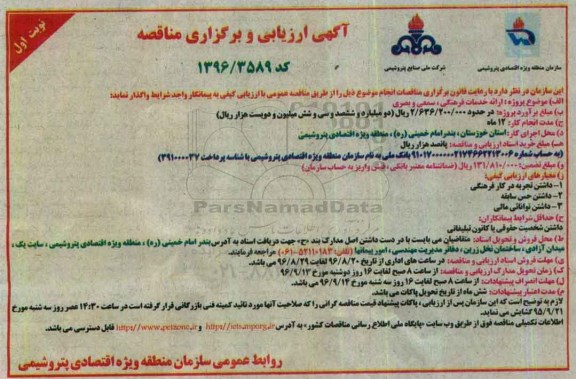 نوبت اول
آگهی ارزیابی و برگزاری مناقصه
کد ۱۳۹۶/۳۵۸۹
شرکت ملی صنایع پتروشیمی
سازمان منطقه ویژه اقتصادی پتروشیمی
این سازمان در نظر دارد با رعایت قانون برگزاری مناقصات انجام موضوع ذیل را از طریق مناقصه عمومی با ارزیابی کیفی به پیمانکار واجد شرایط واگذار نماید:
الف) موضوع پروژه: ارائه خدمات فرهنگی، سمعی و بصری
ب) مبلغ برآورد پروژه: در حدود ۲/۶۳۶/۲۰۰/۰۰۰ ریال (دو میلیارد و ششصد و سی و شش میلیون و دویست هزار ریال)
ج) مدت انجام کار: ۱۲ ماه
د) محل اجرای کار: استان خوزستان، بندر امام خمینی (ره)، منطقه ویژه اقتصادی پتروشیمی
ه) مبلغ خرید اسناد ارزیابی و مناقصه: پانصد هزار ریال
(به حساب شماره ۲۱۷۴۶۶۲۲۱۳۰۰۶ بانک ملی به نام سازمان منطقه ویژه اقتصادی پتروشیمی با شناسه پرداخت
و) مبلغ تضمین: ۱۳۱/۸۱۰/۰۰۰ ریال (ضمانتنامه معتبر بانکی، فیش واریز به حساب سازمان)
ز) معیارهای ارزیابی کیفی:
۱- داشتن تجربه در کار فرهنگی
۲- داشتن حس سابقه
۳- داشتن توانائی مالی
ح) حداقل شرایط پیمانکاران:
داشتن شخصیت حقوقی یا کانون تبلیغاتی
ط) محل فروش و تحویل اسناد: متقاضیان می بایست با در دست داشتن اصل مدارک بند «ح» جهت دریافت اسناد به آدرس بندر امام خمینی (ره)، منطقه ویژه اقتصادی پتروشیمی، سایت یک،
میدان آزادی، ساختمان نخل زرین، دفتر مدیریت مهندسی، امور پیمانها (تلفن: ۵۲۱۱۰۱۸۳-۰۶۱) مراجعه فرمایند.
ی) مهلت فروش اسناد ارزیابی و مناقصه: در ساعت های اداری از تاریخ ۹۶/۸/۲۰ لغایت ۹۶/۸/۲۹ می باشد.
ک) زمان تحویل مدارک ارزیابی و مناقصه: از ساعت ۸ صبح لغایت ۱۶ روز دوشنبه مورخ ۹۶/۹/۱۳
ل) مهلت انصراف پیشنهادات: از ساعت ۸ صبح لغایت ۱۶ روز سه شنبه مورخ ۹۶/۹/۱۴ می باشد.
م) مدت اعتبار پیشنهادات: شش ماه از تاریخ تحویل پاکات می باشد.
لازم به توضیح است که این سازمان پس از ارزیابی، پاکات پیشنهاد قیمت مناقصه گرانی را که صلاحیت آنها مورد تائید کمیته فنی بازرگانی قرار گرفته است در ساعت ۱۴:۳۰ عصر روز سه شنبه مورخ
۹۵/۹/۲۱ گشایش می نماید.
اطلاعات تکمیلی مناقصه فوق از طریق وب سایت «پایگاه ملی اطلاع رسانی مناقصات کشور» به آدرس http://iets.mporg.ir و http://www.petzone.ir قابل دسترسی می باشد.
روابط عمومی سازمان منطقه ویژه اقتصادی پتروشیمی
ParsNamadData